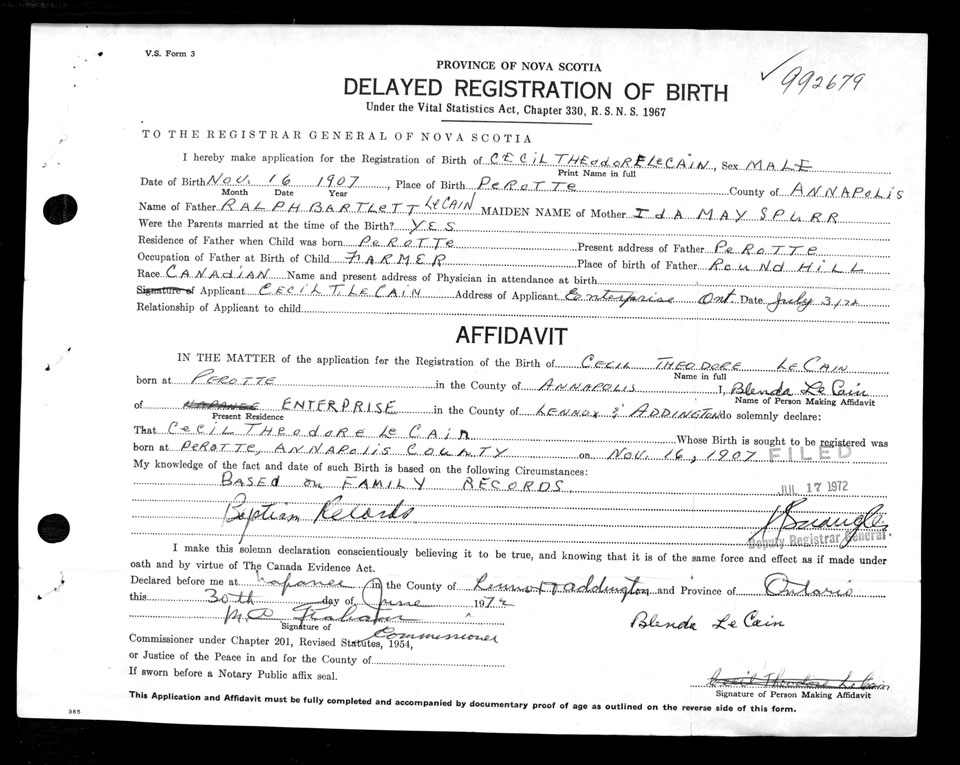 V.S. Form 3
PROVINCE OF NOVA SCOTIA
✓992679
DELAYED REGISTRATION OF BIRTH
Under the Vital Statistics Act, Chapter 330, R.S.N.S. 1967
TO THE REGISTRAR GENERAL OF NOVA SCOTIA
I hereby make application for the Registration of Birth of CECIL THEODORE LeCAIN, Sex MALE
Print Name in full
Date of Birth NOV. 16 1907, Place of Birth PEROTTE County of ANNAPOLIS
Month Date Year
Name of Father RALPH BARTLETT LeCAIN MAIDEN NAME of Mother IDA MAY SPURR
Were the Parents married at the time of the Birth? YES
Residence of Father when Child was born PEROTTE Present address of Father PEROTTE
Occupation of Father at Birth of Child FARMER Place of birth of Father ROUND HILL
Race CANADIAN Name and present address of Physician in attendance at birth
Signature of Applicant CECIL T. LE CAIN Address of Applicant Enterprise Ont. Date July 3/72
Relationship of Applicant to child
AFFIDAVIT
IN THE MATTER of the application for the Registration of the Birth of CECIL THEODORE LeCAIN
Name in full
born at PEROTTE in the County of ANNAPOLIS I, Blenda Le Cain
Name of Person Making Affidavit
of NAPANEE ENTERPRISE in the County of LENNOX & ADDINGTON do solemnly declare:
Present Residence
That CECIL THEODORE LE CAIN Whose Birth is sought to be registered was
born at PEROTTE, ANNAPOLIS COUNTY on NOV. 16, 1907 FILED
My knowledge of the fact and date of such Birth is based on the following Circumstances:
BASED on FAMILY RECORDS
JUL 17 1972
Baptism Records
Deputy Registrar General
I make this solemn declaration conscientiously believing it to be true, and knowing that it is of the same force and effect as if made under
oath and by virtue of The Canada Evidence Act.
Declared before me at Napanee in the County of Lennox & Addington and Province of Ontario
this 30th day of June 1972
Blenda Le Cain
Signature of Commissioner
Commissioner under Chapter 201, Revised Statutes, 1954,
or Justice of the Peace in and for the County of
If sworn before a Notary Public affix seal.
Cecil Theodore LeCain
Signature of Person Making Affidavit
This Application and Affidavit must be fully completed and accompanied by documentary proof of age as outlined on the reverse side of this form.
385